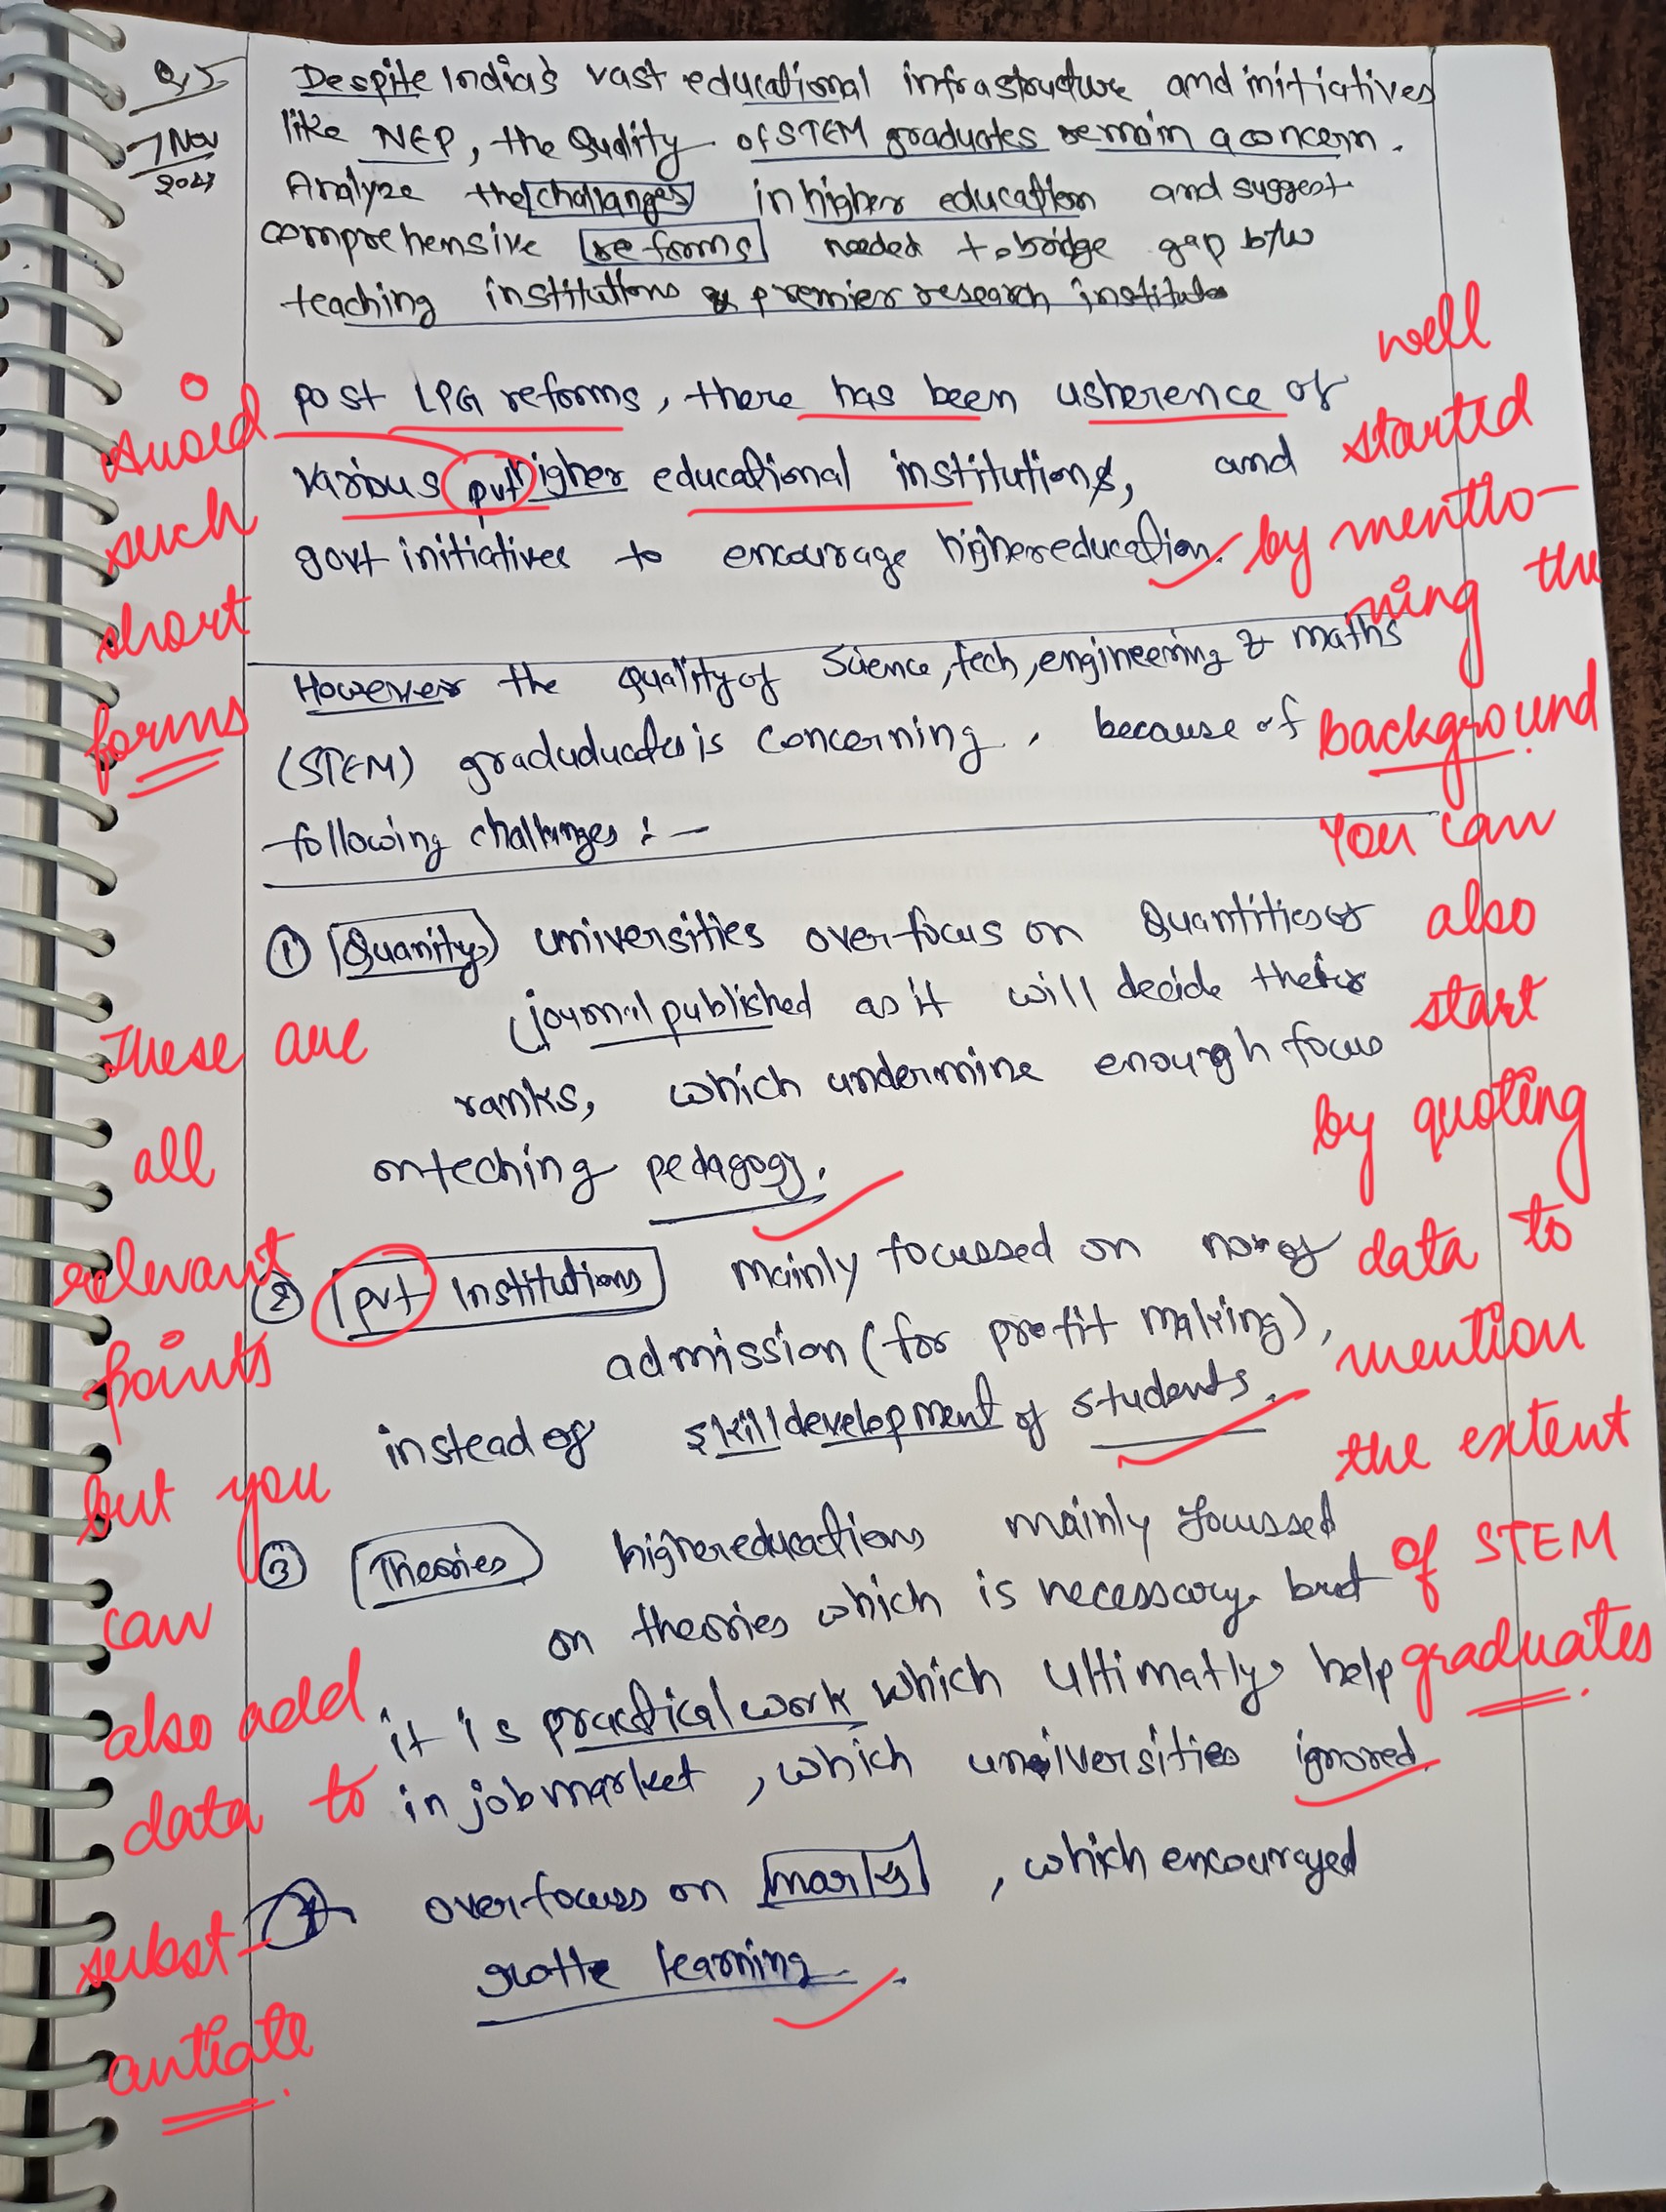 Q5
7 Nov
2024
Despite India's vast educational infrastructure and initiatives
like NEP, the Quality of STEM graduates remain a concern.
Analyze the challanges in higher education and suggest
comprehensive reforms needed to bridge gap b/w
teaching institutions & premier research institutes
post LPG reforms, there has been usherence of
various pvt higher educational institutions, and
govt initiatives to encourage higher education.
However the quality of Science, tech, engineering & maths
(STEM) graduducates is concerning, because of
following challenges :-
① Quanity universities overfocus on Quantities of
journal published as it will decide their
ranks, which undermine enough focus
on teching pedagogy.
② pvt institutions mainly focussed on no. of
admission (for profit making),
instead of skill development of students.
③ Theories higher educations mainly focussed
on theories which is necessary but
it is practical work which ultimatly help
in job market, which universities ignored
④ overfocus on marks, which encouraged
rotte learning.
Avoid
such
short
forms
These are
all
relevant
points
but you
can
also add
data to
subst-
antiate.
well
started
by mentio-
ning the
background
You can
also
start
by quoting
data to
mention
the extent
of STEM
graduates.